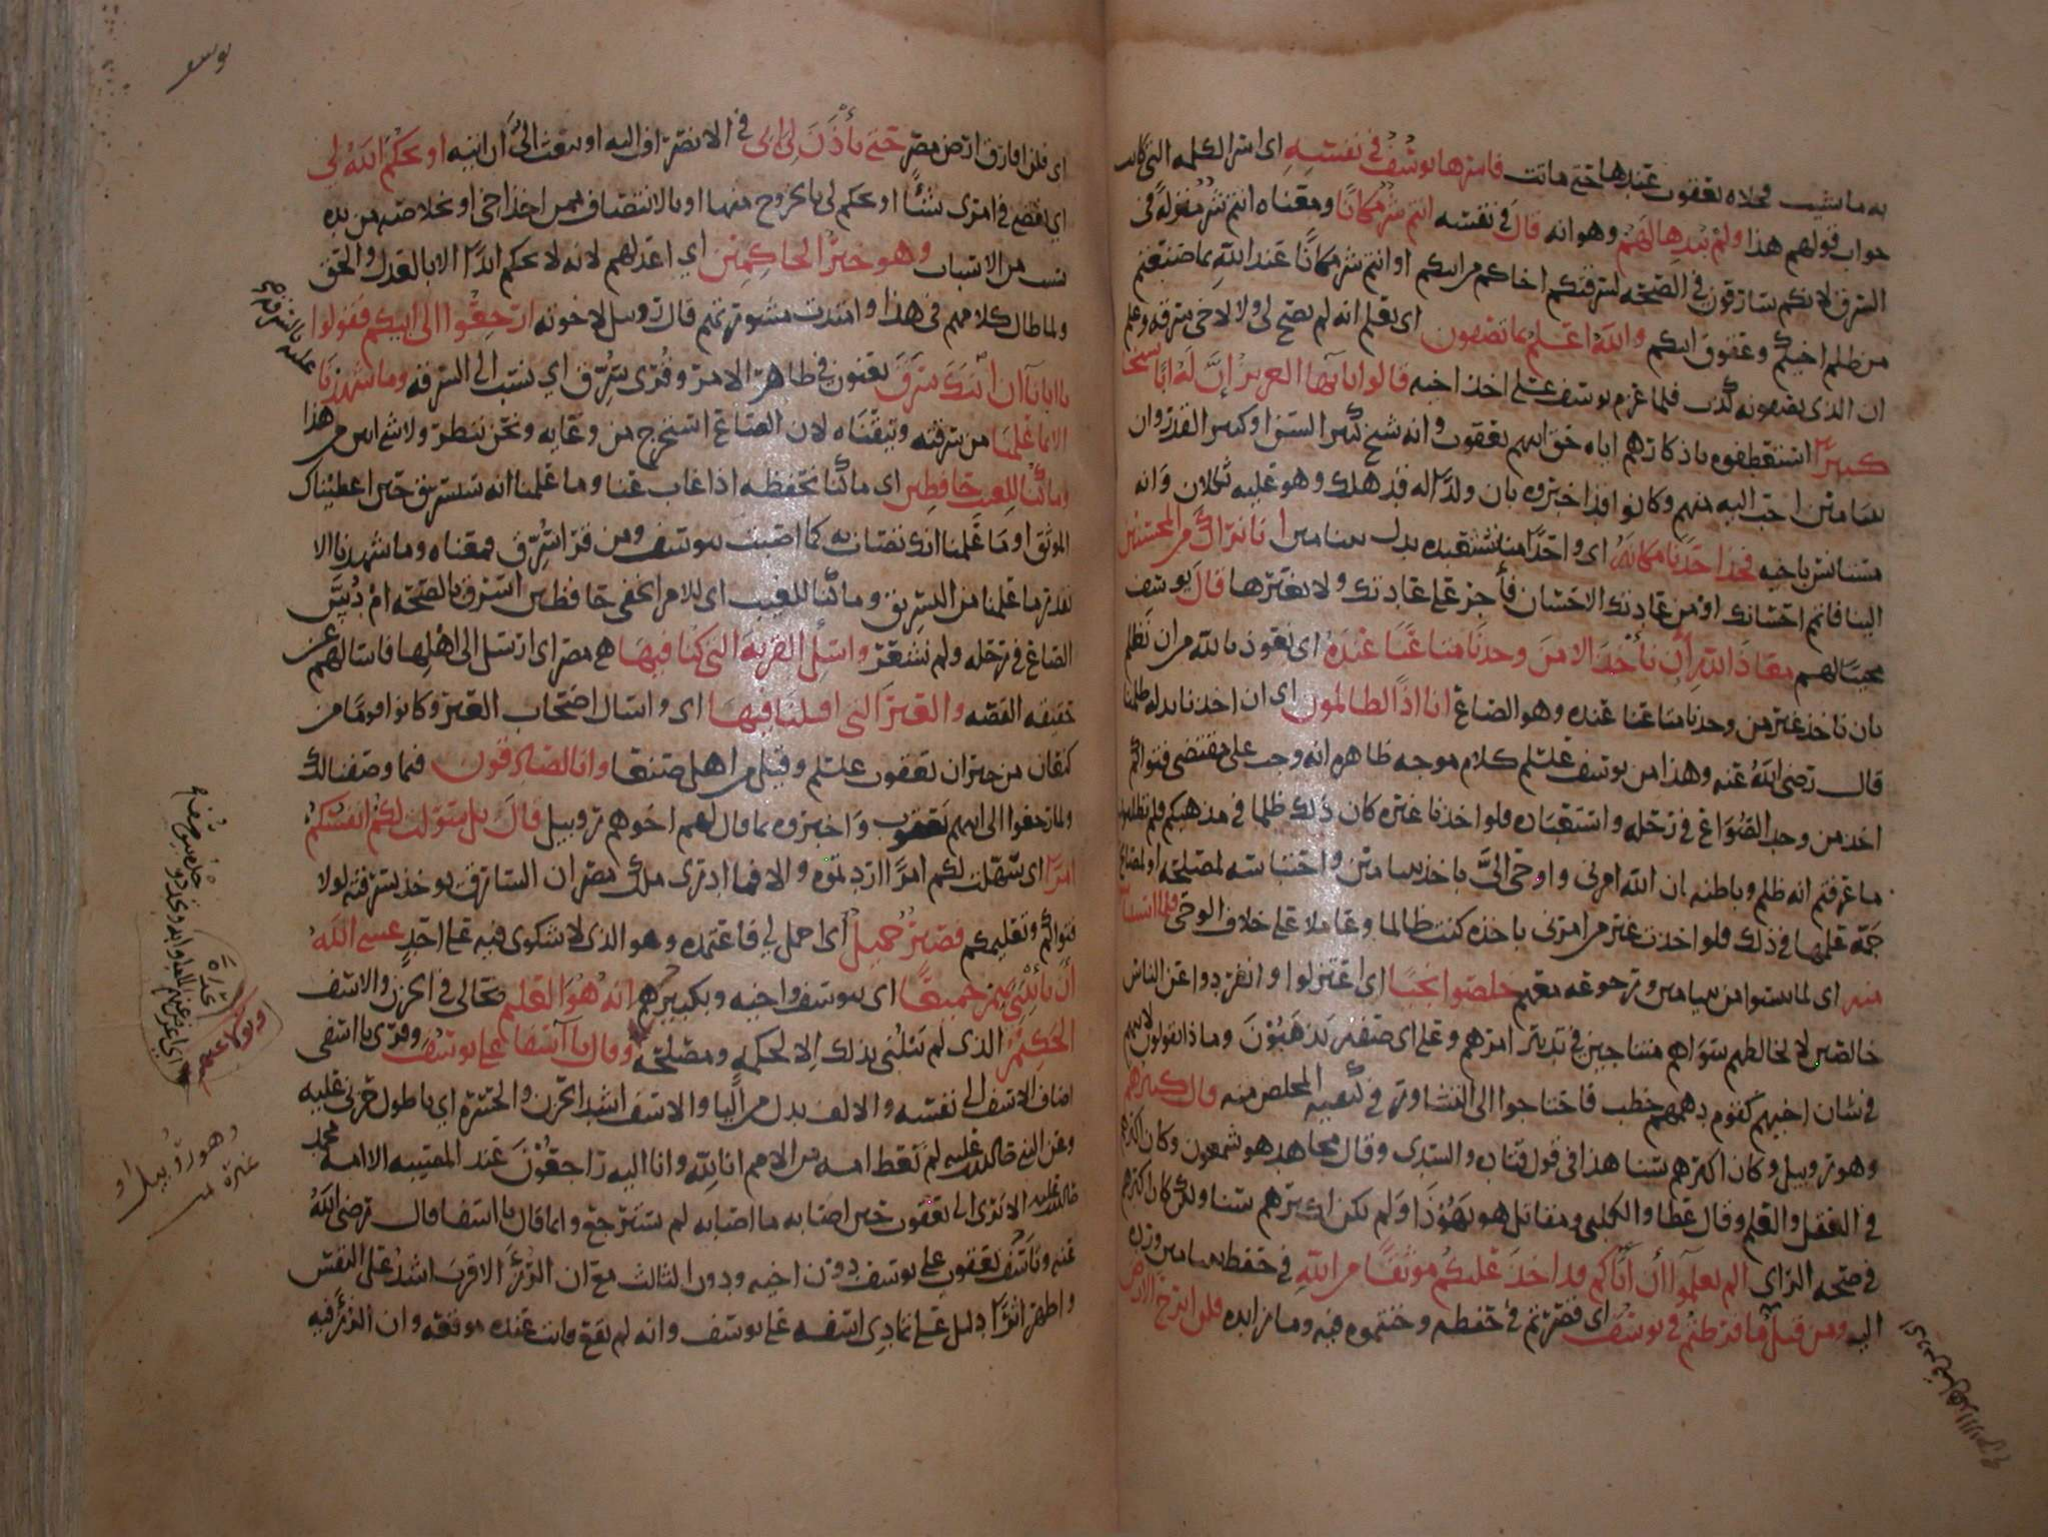 به ما شبب فخلاه يعقوب عندها حتى ماتت فاسرها يوسف في نفسه اي اسر الكلمه التي كانت
جواب قولهم هذا ولم يبدها لهم وهو انه قال في نفسه انتم شر مكانا ومعناه انتم شر منزله في
السرق لانكم سارقون في الصحه لسرقتكم اخاكم من ابيكم او انتم شر مكانا عند الله بما صنعتم
من ظلم اخيكم وعقوق ابيكم والله اعلم بما تصفون اي يعلم انه لم يصح لي ولا لاخي سرقه وعلم
ان الذي يصفونه كذب فلما عزم يوسف على اخذ اخيه قالوا يا ايها العزيز ان له ابا شيخا
كبيرا استعطفوه باذكارهم اياه حق ابيهم يعقوب وانه شيخ كبير السن او كبير القدر وان
بنيامين احب اليه منهم وكانوا قد اخبروه بان ولدا له قد هلك وهو عليه ثكلان وانه
مستانس باخيه فخذ احدنا مكانه اي واحدا منا تستعبده بدل بنيامين انا نراك من المحسنين
الينا فاتم احسانك او من عادتك الاحسان فأجر على عادتك ولا تغيرها قال يوسف
مجيبا لهم معاذ الله ان نأخذ الا من وجدنا متاعنا عنده اي نعوذ بالله من ان نظلم
بان ناخذ غير من وجدنا متاعنا عنده وهو الصاع انا اذا لظالمون اي ان اخذنا بدله ظلمنا
قال رضي الله عنه وهذا من يوسف علسلم كلام موجه ظاهره انه وجب على مقتضى فتواكم
اخذ من وجد الصواع في رحله واستعباده فلو اخذنا غيره كان ذلك ظلما في مذهبكم فلم تطلبون
ما عرفتم انه ظلم وباطنه ان الله امرني واوحى الي باخذ بنيامين واحتباسه لمصلحه او لمصالح
جمة علمها في ذلك فلو اخذت غير من امرني باخذه كنت ظالما وعاملا على خلاف الوحي فلما استيأسوا
منه اي لما يئسوا من بنيامين ورجوعه معهم خلصوا نجيا اي اعتزلوا وانفردوا عن الناس
خالصين لا يخالطهم سواهم متناجين في تدبير امرهم وعلى اي صفه يذهبون وماذا يقولون لابيهم
في شان اخيهم كقوم دهمهم خطب فاحتاجوا الى التشاور في كيفيه المخلص منه قال كبيرهم
وهو روبيل وكان اكبرهم سنا هذا في قول قتاده والسدي وقال مجاهد هو شمعون وكان اكبرهم
في العقل والعلم وقال عطا والكلبي ومقاتل هو يهوذا ولم يكن اكبرهم سنا ولكن كان اكبرهم
في صحه الراي الم تعلموا ان اباكم قد اخذ عليكم موثقا من الله في حفظ بنيامين ورده
اليه ومن قبل ما فرطتم في يوسف اي قصرتم في حفظه وخنتموه فيه وما زايده فلن ابرح الارض
يوسف
اي فلن افارق ارض مصر حتى يأذن لي ابي في الانصراف اليه او يبعث الي ان اتيه او يحكم الله لي
اي يقضي في امري شيئا او يحكم لي بالخروج منها او بالانتصاف ممن اخذ اخي او بخلاصه من يده
بسبب من الاسباب وهو خير الحاكمين اي اعدلهم لانه لا يحكم ابدا الا بالعدل والحق
ولما طال كلامهم في هذا وامتدت مشورتهم قال روبيل لاخوته ارجعوا الى ابيكم فقولوا
يا ابانا ان ابنك سرق يعنون في ظاهر الامر وقرى سرق اي نسب الى السرقه وما شهدنا
عليه بالسرقه
الا بما علمنا من سرقته وتيقناه لان الصاع استخرج من وعايه ونحن ننظر ولا شي ابين من هذا
وما كنا للغيب حافظين اي ما كنا نحفظه اذا غاب عنا وما علمنا انه سيسرق حين اعطيناك
الموثق او ما علمنا انك تصاب به كما اصبت بيوسف ومن قرا سرق فمعناه وما شهدنا الا
بقدر ما علمنا من التسريق وما كنا للغيب اي للامر الخفي حافظين اسرق بالصحه ام دس
الصاع في رحله ولم يشعر واسئل القريه التي كنا فيها هي مصر اي ارسل الى اهلها فاسالهم عن
حقيقه القصه والعير التي اقبلنا فيها اي واسال اصحاب العير وكانوا قوما من
كنعان من جيران يعقوب علسلم وقيل من اهل صنعا وانا لصادقون فيما وصفنا لك
ولما رجعوا الى ابيهم يعقوب واخبروه بما قال لهم اخوهم روبيل قال بل سولت لكم انفسكم
امرا اي سهلت لكم امرا اردتموه والا فما ادرى ملك مصر ان السارق يوخذ بسرقته لولا
فتواكم وتعليمكم فصبر جميل اي اجمل لي فاعتمده وهو الذي لا شكوى فيه على احد عسى الله
أن يأتيني بهم جميعا اي بيوسف واخيه وبكبيرهم انه هو العليم بحالي في الحزن والاسف
الحكيم الذي لم يبتلني بذلك الا لحكمة ومصلحة وقال يا أسفا على يوسف وقرى يا اسفي
وتولى عنهم
اضاف الاسف الى نفسه والالف بدل من اليا والاسف اشد الحزن والحسرة اي يا طول حزني عليه
وعن النبي صلى الله عليه لم تعط امه من الامم انا لله وانا اليه راجعون عند المصيبه الا امة محمد
صلى الله عليه الا ترى الى يعقوب حين اصابه ما اصابه لم يسترجع وانما قال يا اسفا قال رضي الله
عنه وتأسف يعقوب على يوسف دون اخيه ودون الثالث مع ان الرزء الاقرب اشد على النفس
واظهر اثرا دليل على تمادي اسفه على يوسف وانه لم يقع فايت عنده موقعه وان الرزء فيه
وهو روبيل او
غيره